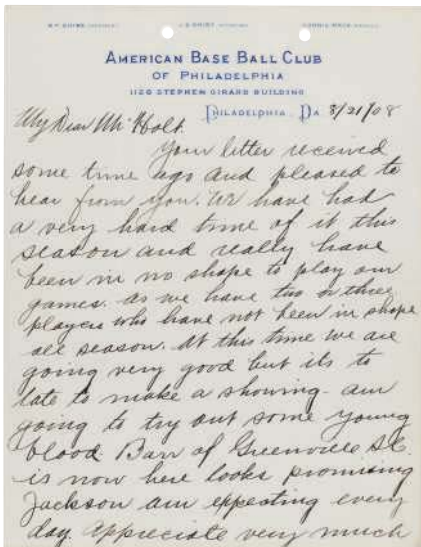 AMERICAN BASE BALL CLUB
OF PHILADELPHIA
1120 STEPHEN GIRARD BUILDING
PHILADELPHIA, PA 8/21/08
My Dear Mr Holt.
Your letter received
some time ago and pleased to
hear from you. We have had
a very hard time of it this
season and really have
been in no shape to play our
games. as we have two or three
players who have not been in shape
all season. At this time we are
going very good but its to
late to make a showing - am
going to try out some young
blood. Barr of Greenville S.C.
is now here looks promising
Jackson am expecting every
day. Appreciate very much